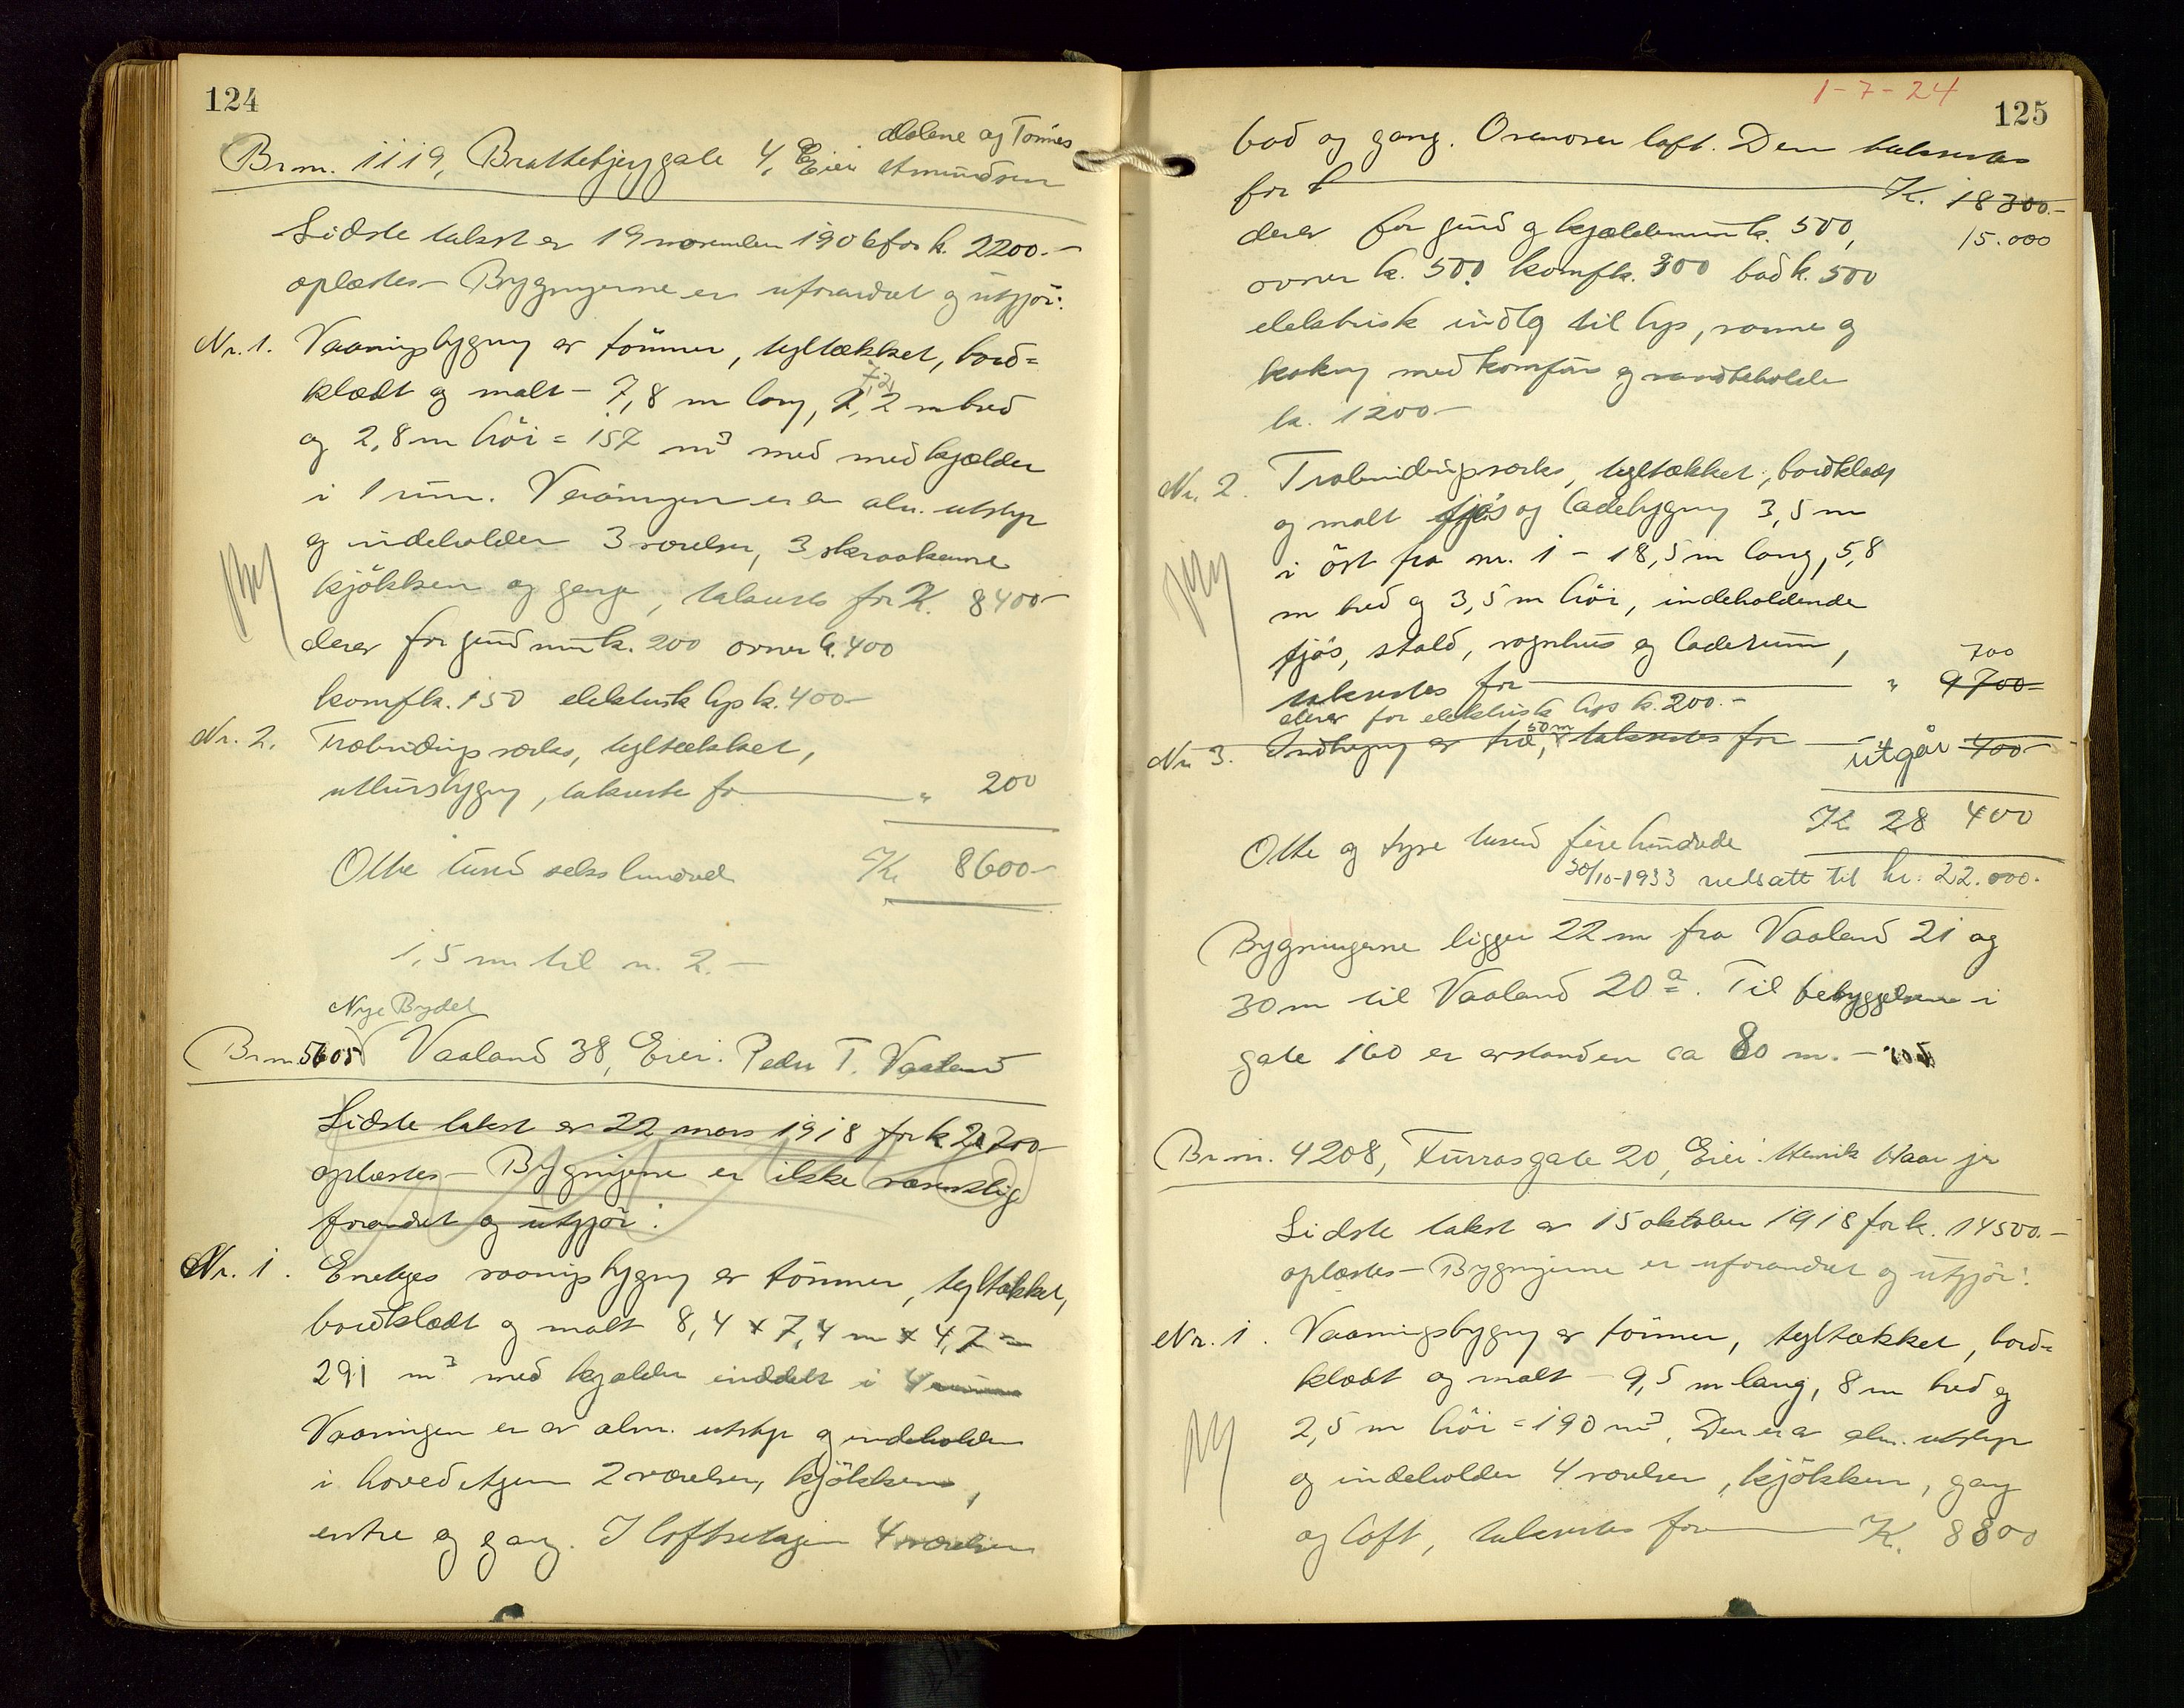 124
Malene og Tönnes
Br.nr. 1119, Brattebjerggate 4, Eier Amundsen
Sidste takst er 19 november 1906 for k. 2200.-
oplæstes - Bygningerne er uforandret og utgjör:
Nr. 1. Vaaningsbygning er tömmer, tegltækket, bord=
klædt og malt - 7,8 m lang, 7,2 m bred
og 2,8 m höi = 157 m³ med med kjælder
i 1 rum. Vaaningen er av alm. utstyr
og indeholder 3 værelser, 3 skraakamre
kjökken og gange, takseres for K. 8400-
derav for grundmur k. 200 ovner k. 400
komf k. 150 elektrisk lys k. 400-
Nr. 2. Træbindingsværks, tegltækket,
uthusbygning, takseres for " 200
Otte tusend seks hundrede K. 8600-
1,5 m til nr. 2.-
Nye Bydel
Br.nr. 5605 Vaaland 38, Eier: Peder T. Vaaland
Sidste takst er 22 mars 1918 for k 21200-
oplæstes - Bygningerne er ikke væsentlig
forandret og utgjör:
Nr. 1. Enetages vaaningsbygning er tömmer, tegltækket,
bordklædt og malt 8,4 x 7,4 m x 4,7 =
291 m³ med kjælder inddelt i 4 rum
Vaaningen er av alm. utstyr og indeholder
i hovedetagen 2 værelser, kjökken,
entre og gang. I loftsetagen 4 værelser
1-7-24
125
bad og gang. Ovenover loft. Den takseres
for K. 18300.-
15.000
derav for grund og kjældermur k. 500,
ovner k. 500 komf k. 300 bad k. 500
elektrisk indlg til lys, varme og
kokning med komfür og vandbeholder
k. 1200-
Nr. 2. Træbindingsverks, tegltækket, bordklædt
og malt fjös og ladebygning 3,5 m
i öst fra nr. 1 - 18,5 m lang, 5,8
m bred og 3,5 m höi, indeholdende
fjös, stald, vognhus og laderum,
700
takseres for " 9700-
derav for elektrisk lys k. 200.-
Nr. 3. Indhegning er træ, 50 m takseres for utgår 400-
K. 28 400
Otte og tyve tusend firehundrede
30/10-1933 nedsatt til kr: 22.000.-
Bygningerne ligger 22 m fra Vaaland 21 og
30 m til Vaaland 20 a. Til bebyggelsen i
gate 160 er avstanden ca 80 m.-
Br.nr. 4208, Furrasgate 20, Eier: Henrik Waar jr
Sidste takst er 15 oktober 1918 for k. 14500.-
oplæstes - Bygningerne er uforandret og utgjör:
Nr. 1. Vaaningsbygning er tömmer, tegltækket, bord=
klædt og malt - 9,5 m lang, 8 m bred og
2,5 m höi = 190 m³. Den er av alm. utstyr
og indeholder 4 værelser, kjökken, gang
og loft, takseres for K. 8800